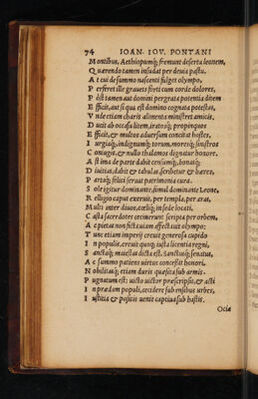 74 IOAN. IOV. PONTANI
Montibus, Aethiopumq; fremunt deserta leonem,
Quaerendo tamen insudat per deuia pastu.
At cui de summo nascenti fulget olympo,
Perferet ille graueis forti cum corde dolores,
Post tamen aut domini pergrata potentia ditem
Efficit, aut si qua est domino cognata potestas,
Vnde etiam charis alimenta ministret amicis.
Ducit ab occasu litem, iratosq; propinquos
Efficit, & multos aduersum concitat hostes,
Iurgiaq;, indignumq; torum, moresq; sinistros
Coniugis, & nullo thalamos dignatur honore.
Ast ima de parte dabit censumq;, bonaq;
Diuitias, dabit & tabulas, scribetur & haeres,
Partaq; felici seruat patrimonia cura.
Sole igitur dominante, simul dominante Leone,
Relligio caput exeruit, per templa, per aras,
Multi inter diuos, coeliq; in sede locati,
Casta sacerdotes cecinerunt scripta per orbem,
Ac pietas non fictuiam affectauit olympo:
Tunc etiam imperij creuit generosa cupido
In populis, creuit quoq; iusta licentia regni,
Sanctaq; maiestas dicta est. Sanctusq; senatus,
Ac summo patiens uirtus concessit honori,
Nobilitasq; etiam duris quaesita sub armis.
Pugnatum est: uicto uictor praescripsit, & acti
In praedam populi, cecidere sub ensibus urbes,
Iustitia & positis uenit captiua sub hastis.
Ocia